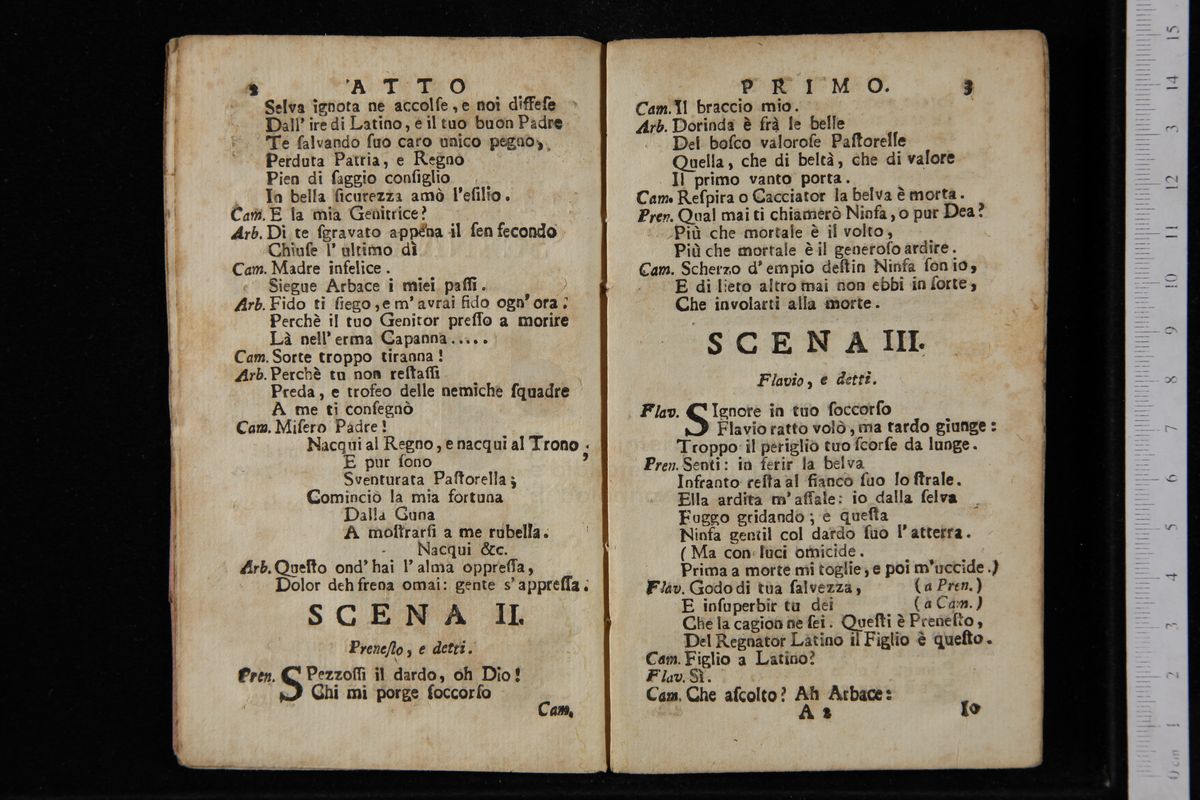 2 ATTO
Selva ignota ne accolse, e noi diffese
Dall' ire di Latino, e il tuo buon Padre
Te salvando suo caro unico pegno,
Perduta Patria, e Regno
Pien di saggio consiglio
In bella sicurezza amò l'esilio.
Cam. E la mia Genitrice?
Arb. Di te sgravato appena il sen fecondo
Chiuse l' ultimo dì
Cam. Madre infelice.
Siegue Arbace i miei passi.
Arb. Fido ti siego, e m' avrai fido ogn' ora.
Perchè il tuo Genitor presso a morire
Là nell' erma Capanna.....
Cam. Sorte troppo tiranna!
Arb. Perchè tu non restassi
Preda, e trofeo delle nemiche squadre
A me ti consegnò
Cam. Misero Padre!
Nacqui al Regno, e nacqui al Trono,
E pur sono
Sventurata Pastorella;
Cominciò la mia fortuna
Dalla Cuna
A mostrarsi a me rubella.
Nacqui &c.
Arb. Questo ond' hai l' alma oppressa,
Dolor deh frena omai: gente s' appressa.
SCENA II.
Prenesto, e detti.
Pren. SPezzossi il dardo, oh Dio!
Chi mi porge soccorso
Cam.
PRIMO. 3
Cam. Il braccio mio.
Arb. Dorinda è frà le belle
Del bosco valorose Pastorelle
Quella, che di beltà, che di valore
Il primo vanto porta.
Cam. Respira o Cacciator la belva è morta.
Pren. Qual mai ti chiamerò Ninfa, o pur Dea?
Più che mortale è il volto,
Più che mortale è il generoso ardire.
Cam. Scherzo d' empio destin Ninfa son io,
E di lieto altro mai non ebbi in sorte,
Che involarti alla morte.
SCENA III.
Flavio, e detti.
Flav. SIgnore in tuo soccorso
Flavio ratto volò, ma tardo giunge:
Troppo il periglio tuo scorse da lunge.
Pren. Senti: in ferir la belva
Infranto resta al fianco suo lo strale.
Ella ardita m' assale: io dalla selva
Fuggo gridando; e questa
Ninfa gentil col dardo suo l' atterra.
(Ma con luci omicide.
Prima a morte mi toglie, e poi m'uccide.)
Flav. Godo di tua salvezza, (a Pren.)
E insuperbir tu dei (a Cam.)
Che la cagion ne sei. Questi è Prenesto,
Del Regnator Latino il Figlio è questo.
Cam. Figlio a Latino?
Flav. Sì.
Cam. Che ascolto? Ah Arbace:
A 2 Io